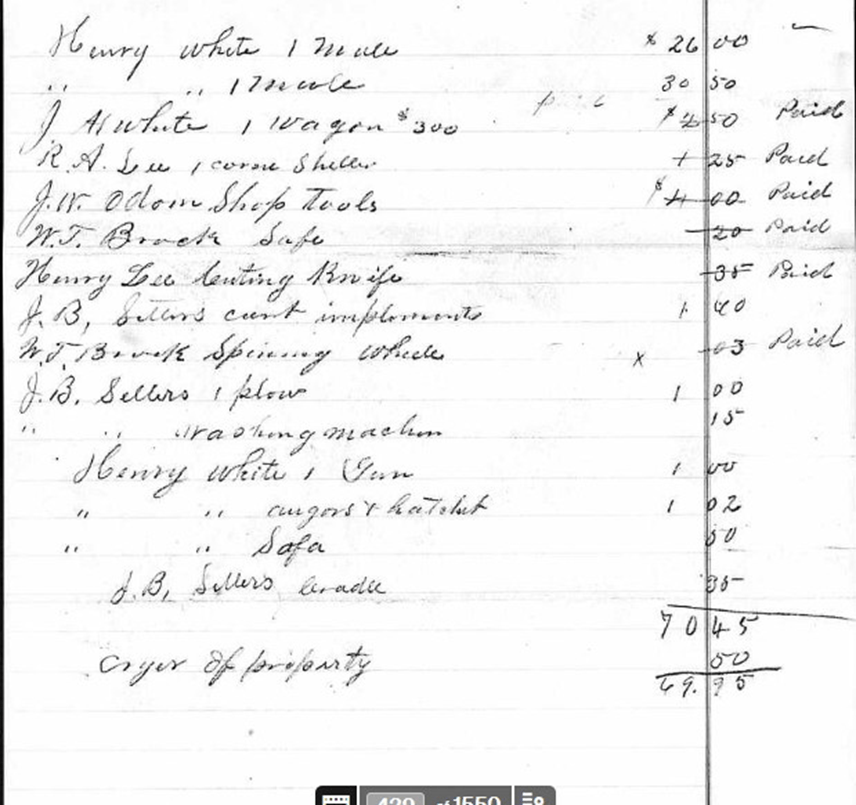 Henry White 1 Mule $26 00
" " 1 Mule 30 50
J A White 1 Wagon $300 paid $2 50 Paid
R. A. Lee 1 corn Sheller 1 25 Paid
J. W. Odom Shop Tools $4 00 Paid
W. T. Brock Safe 20 Paid
Henry Lee Cuting Knife 35 Paid
J. B, Sellers implements 1 40
W. T. Brock Spinning wheele x 03 Paid
J. B. Sellers 1 plow 1 00
" " Washing machin 15
Henry White 1 Gun 1 00
" " augors & hatchet 1 02
" " Sofa 50
J. B, Sellers Cradle 35
70 45
cryer of property 50
69.95
429 of 1550